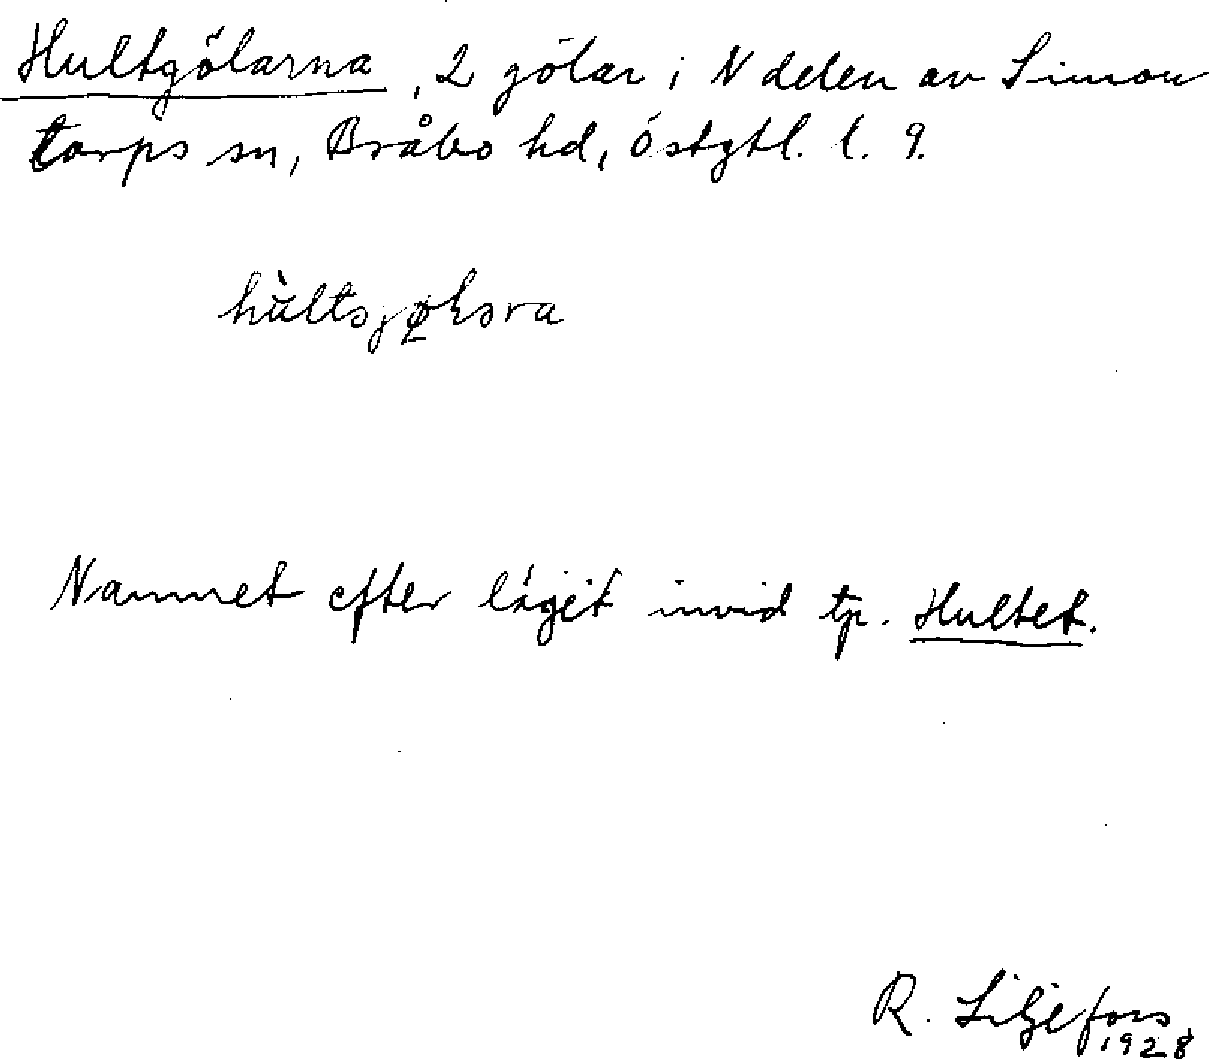 Hultgölarna, 2 gölar i N delen av Simon
torps sn, Bråbo hd, Östgtl. l. 9.
Namnet efter läget invid tp. Hultet.
R. Liljefors
1928